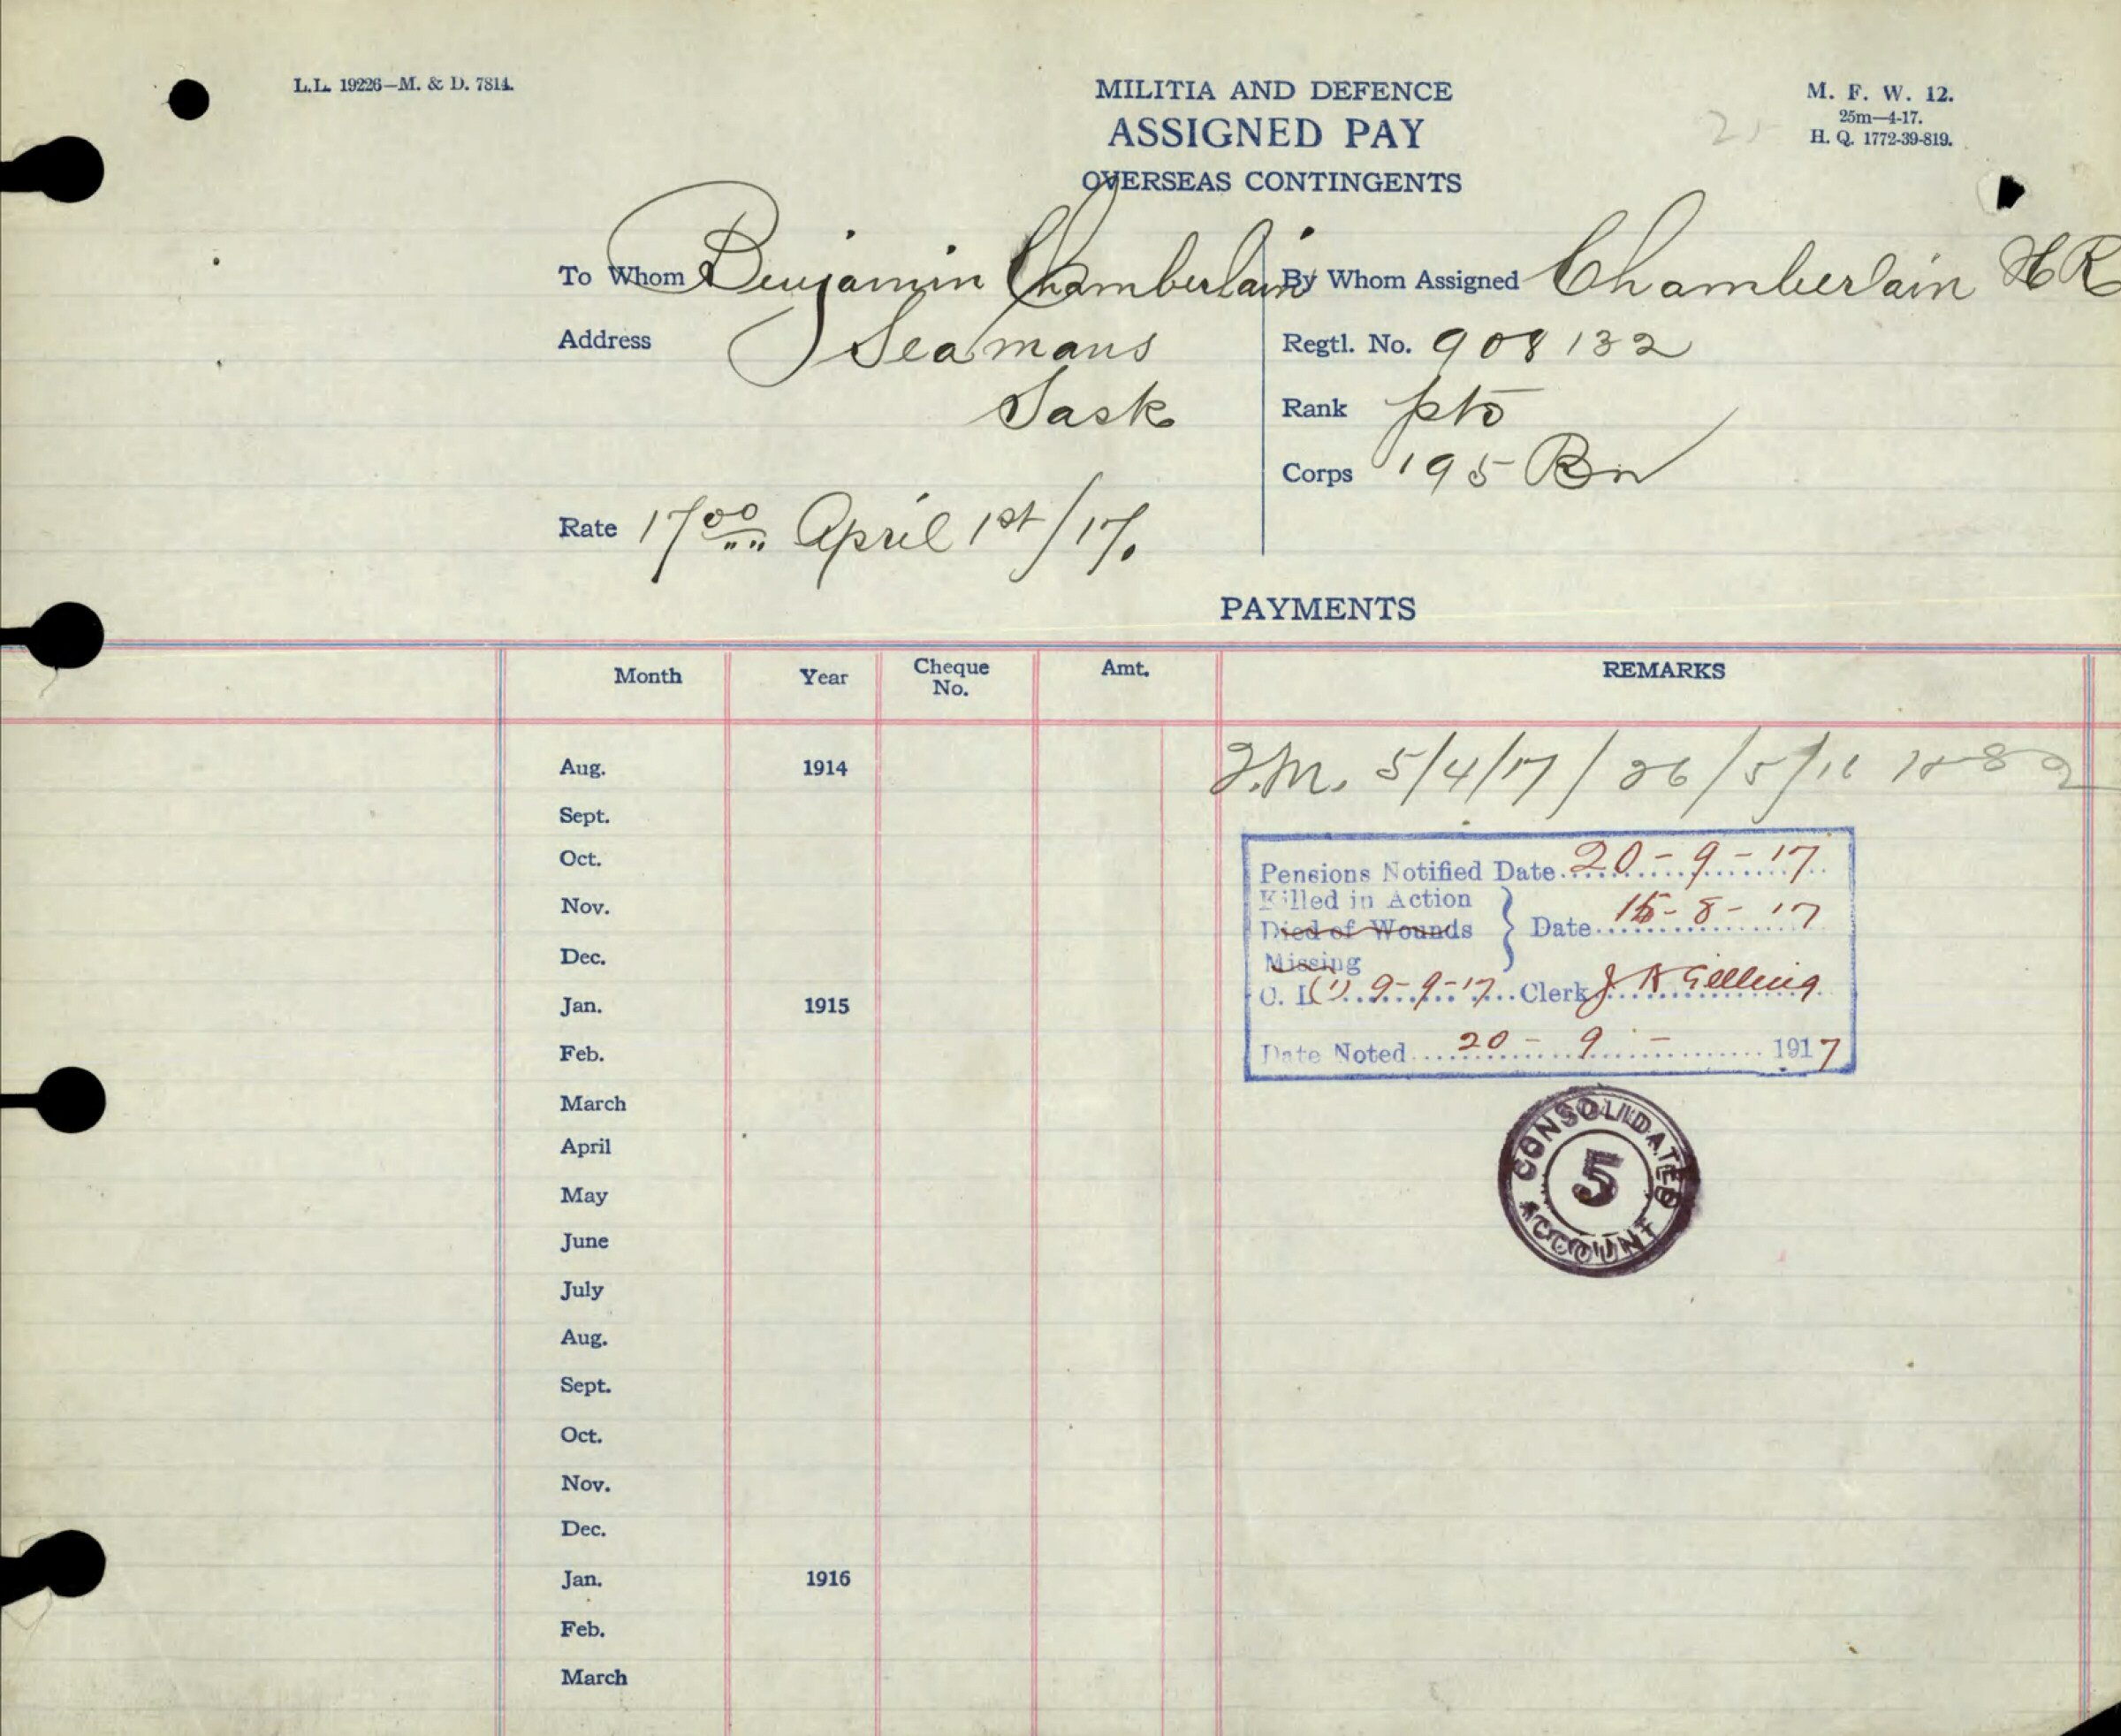 L.L. 19226—M. & D. 7814.
MILITIA AND DEFENCE
ASSIGNED PAY
OVERSEAS CONTINGENTS
M. F. W. 12.
25m—4-17.
H. Q. 1772-39-819.
To Whom Benjamin Chamberlain
Address Seamans
Sask
Rate 17 00 April 1st/17.
By Whom Assigned Chamberlain H R
Regtl. No. 908132
Rank pte
Corps 195 Bn
PAYMENTS
Month Year Cheque No. Amt. REMARKS
Aug. 1914
5/4/17 / 26/5/16
Sept.
Oct.
Nov.
Dec.
Jan. 1915
Feb.
March
April
May
June
July
Aug.
Sept.
Oct.
Nov.
Dec.
Jan. 1916
Feb.
March
Pensions Notified Date 20-9-17
Killed in Action
Died of Wounds } Date 15-8-17
Missing
C. L (1) 9-9-17 Clerk J. A Gelling
Date Noted 20-9- 1917
CONSOLIDATED
5
ACCOUNT